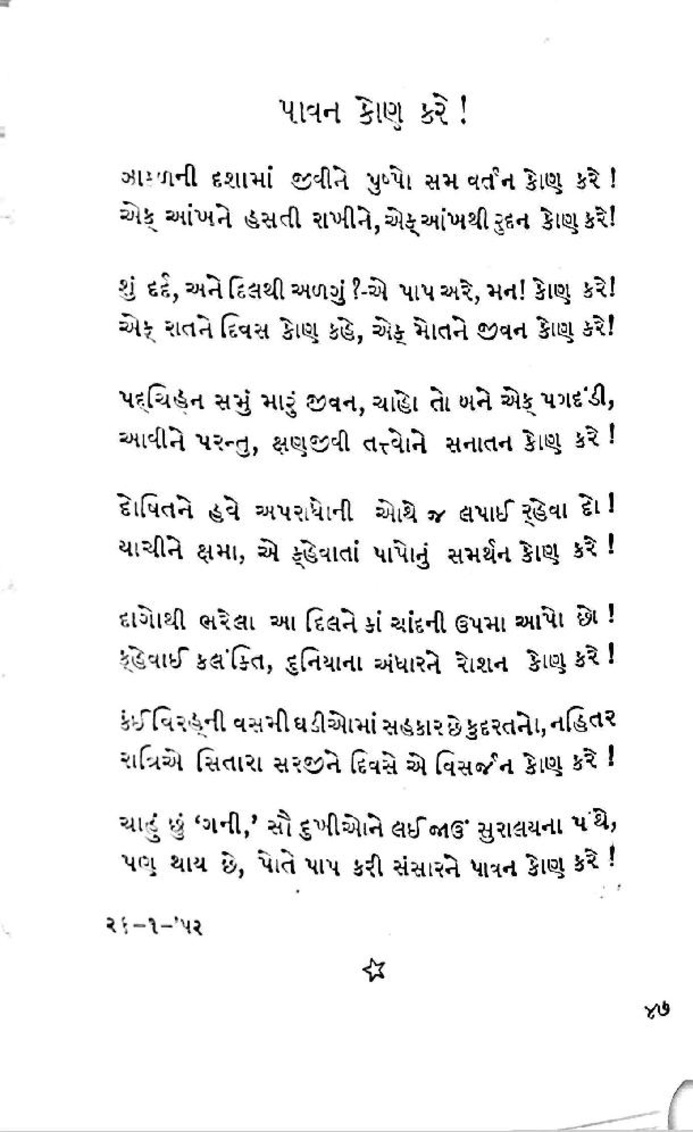 પાવન કોણ કરે !
ઝાકળની દશામાં જીવીને પુષ્પો સમ વર્તન કોણ કરે !
એક્ આંખને હસતી રાખીને, એક્ આંખથી રુદન કોણ કરે!
શું દર્દ, અને દિલથી અળગું ?-એ પાપ અરે, મન! કોણ કરે!
એક્ રાતને દિવસ કોણ કહે, એક્ મોતને જીવન કોણ કરે!
પદ્ચિહ્ન સમું મારું જીવન, ચાહો તો બને એક્ પગદંડી,
આવીને પરન્તુ, ક્ષણજીવી તત્ત્વોને સનાતન કોણ કરે !
દોષિતને હવે અપરાધોની ઓથે જ લપાઈ ર્‌હેવા દો !
યાચીને ક્ષમા, એ ક્‌હેવાતાં પાપોનું સમર્થન કોણ કરે !
દાગોથી ભરેલા આ દિલને કાં ચાંદની ઉપમા આપો છો !
ક્‌હેવાઈ કલંકિત, દુનિયાના અંધારને રોશન કોણ કરે !
કંઈ વિરહ્ની વસમી ઘડીઓમાં સહકાર છે કુદરતનો, નહિતર
રાત્રિએ સિતારા સરજીને દિવસે એ વિસર્જન કોણ કરે !
ચાહું છું ‘ગની,’ સૌ દુખીઓને લઈ જાઉં સુરાલયના પંથે,
પણ થાય છે, પોતે પાપ કરી સંસારને પાવન કોણ કરે !
૨૬-૧-'૫૨
૪૭